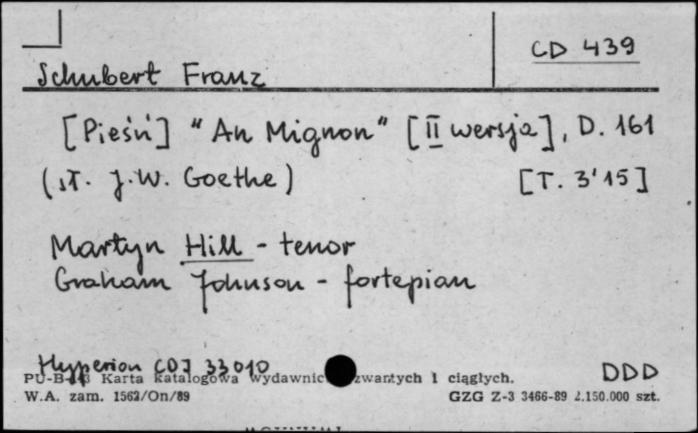 CD 439
Schubert Franz
[Pieśń] "An Mignon" [II wersja], D. 161
(sł. J.W. Goethe) [T. 3'15]
Martyn Hill - tenor
Graham Johnson - fortepian
Hyperion CDJ 33010 DDD
Karta katalogowa wydawnictw zwartych i ciągłych.
W.A. zam. 1562/On/89 GZG Z-3 3466-89 2.150.000 szt.